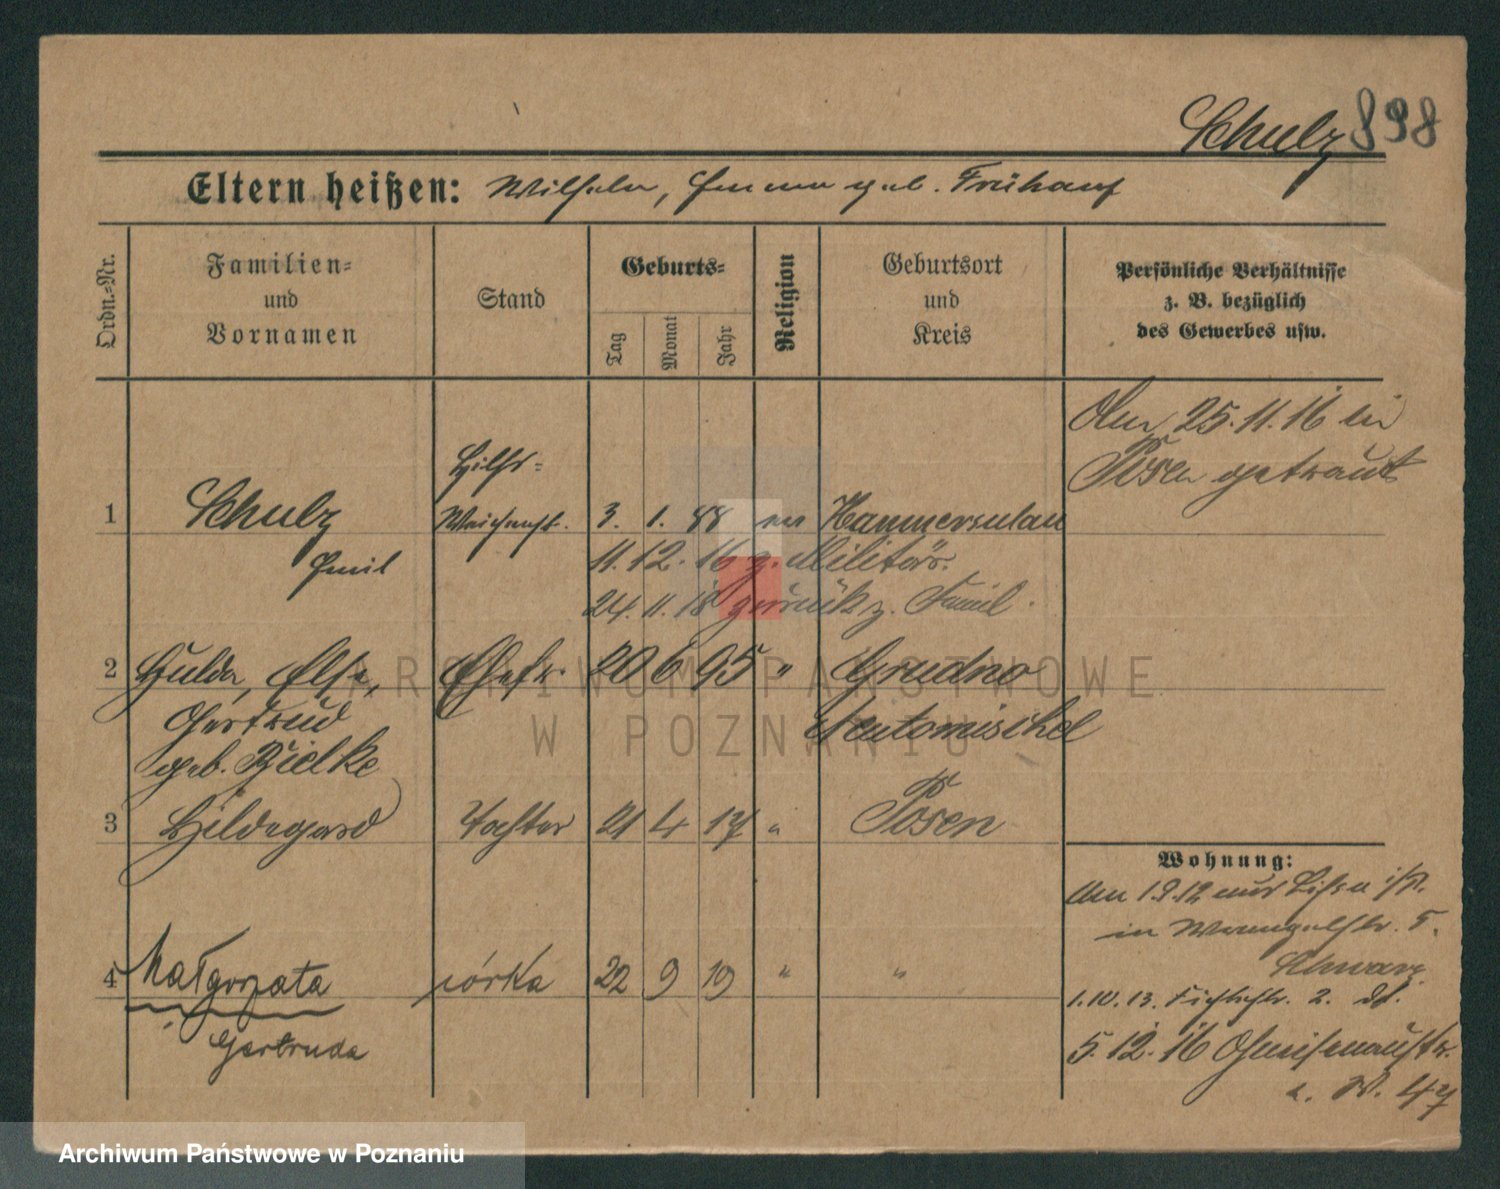 Schulz 898
Eltern heißen: Wilhelm, Emma geb. Frühauf
Ordn.-Nr.
Familien-
und
Vornamen
Stand
Geburts-
Tag
Monat
Jahr
Religion
Geburtsort
und
Kreis
Persönliche Verhältnisse
z. B. bezüglich
des Gewerbes usw.
Am 25.11.16 in
Posen getraut
Hilfs-
1 Schulz Weichenst. 3. 1. 88 ev Hammersulau
Emil
11.12.16 z. Militär.
24.11.18 zurück z. Famil.
2 Hulda, Else, Ehefr. 20 6 95 " Grudno
Gertrud Neutomischel
geb. Bielke
3 Hildegard Tochter 21 4 17 " Posen
Wohnung:
Am 1.9.12 aus Lissa
in Wrangelstr. 5.
Schwarz
4 Małgorzata córka 22 9 19 " "
Gertruda
1.10.13. Fichtestr. 2. dt.
5.12.16 Gneisenaustr.
47
ARCHIWUM PAŃSTWOWE
W POZNANIU
Archiwum Państwowe w Poznaniu